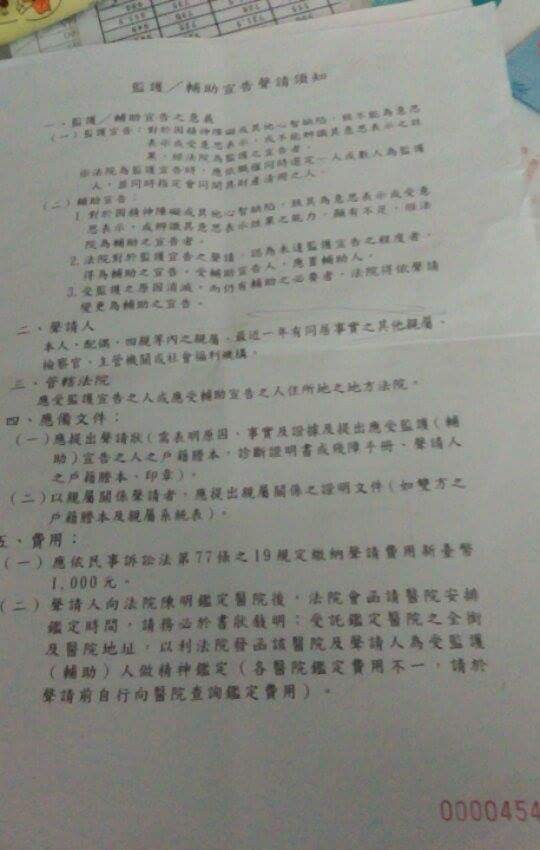 監護／輔助宣告聲請須知
一、監護／輔助宣告之意義
(一)監護宣告：對於因精神障礙或其他心智缺陷，致不能為意思
表示或受意思表示，或不能辨識其意思表示之效
果，經法院為監護之宣告者。
法院為監護宣告時，應依職權同時選定一人或數人為監護
人，並同時指定會同開具財產清冊之人。
(二)輔助宣告：
1.對於因精神障礙或其他心智缺陷，致其為意思表示或受意
思表示，或辨識其意思表示效果之能力，顯有不足，經法
院為輔助之宣告者。
2.法院對於監護宣告之聲請，認為未達監護宣告之程度者，
得為輔助之宣告。受輔助宣告人，應置輔助人。
3.受監護之原因消滅，而仍有輔助之必要者，法院得依聲請
變更為輔助之宣告。
二、聲請人
本人、配偶、四親等內之親屬、最近一年有同居事實之其他親屬、
檢察官、主管機關或社會福利機構。
三、管轄法院
應受監護宣告之人或應受輔助宣告之人住所地之地方法院。
四、應備文件：
(一)應提出聲請狀(需表明原因、事實及證據及提出應受監護(輔
助)宣告之人之戶籍謄本、診斷證明書或殘障手冊、聲請人
之戶籍謄本、印章)。
(二)以親屬關係聲請者，應提出親屬關係之證明文件(如雙方之
戶籍謄本及親屬系統表)。
五、費用：
(一)應依民事訴訟法第77條之19規定繳納聲請費用新臺幣
1,000元。
(二)聲請人向法院陳明鑑定醫院後，法院會函請醫院安排
鑑定時間，請務必於書狀載明：受託鑑定醫院之全銜
及醫院地址，以利法院發函該醫院及聲請人為受監護
(輔助)人做精神鑑定(各醫院鑑定費用不一，請於
聲請前自行向醫院查詢鑑定費用)。
0000454